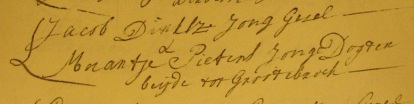 Jacob Dirksz Jong Gesel
&
Maantje Pieters Jonge Dogter
beijde tot Grootebroek